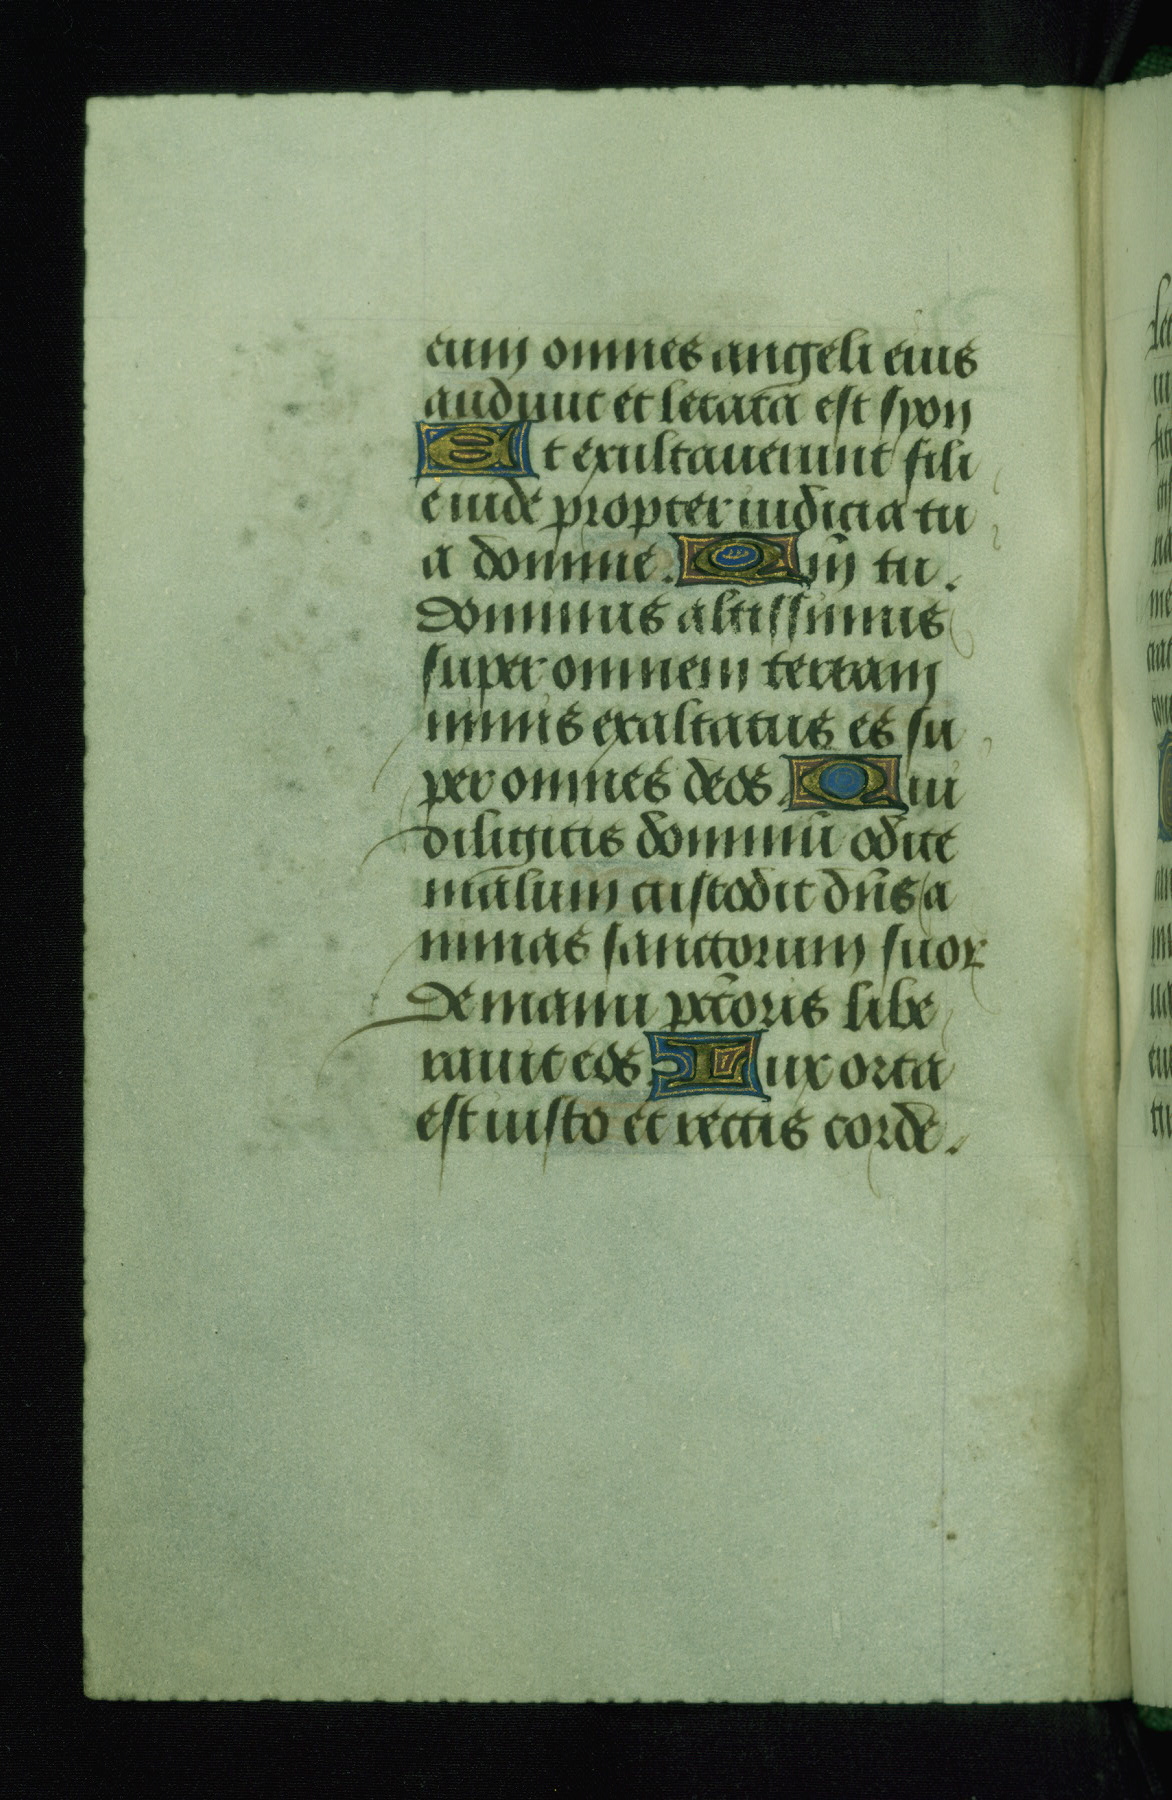 eum omnes angeli eius
audiuit et letata est syon
Et exultauerunt fili
e iude propter iudicia tu
a domine. Qm̄ tu.
dominus altissimus
super omnem terram
nimis exaltatus es su
per omnes deos. Qui
diligitis dominū odite
malum custodit dn̄s a
nimas sanctorum suoꝝ
de manu pctōris libe
rauit eos. Lux orta
est iusto et rectis corde.